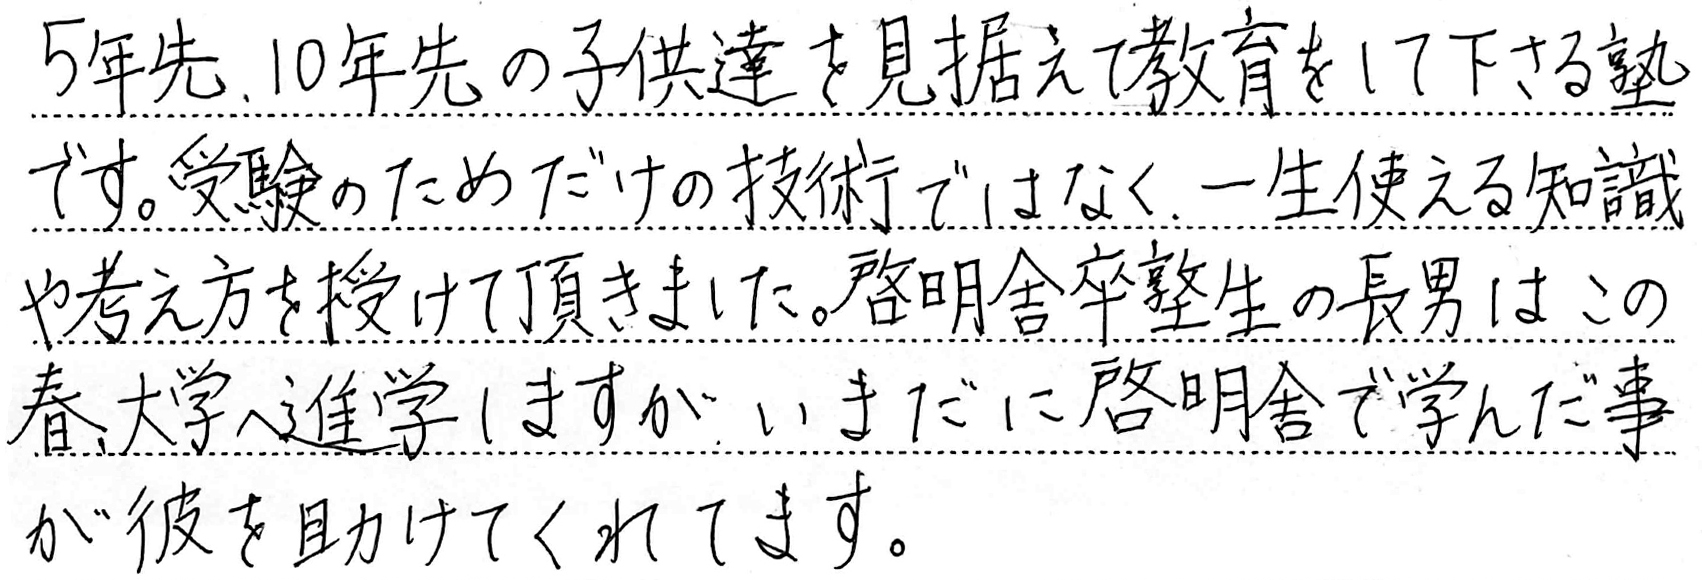 5年先、10年先の子供達を見据えて教育をして下さる塾
です。受験のためだけの技術ではなく、一生使える知識
や考え方を授けて頂きました。啓明舎卒塾生の長男はこの
春、大学へ進学しますが、いまだに啓明舎で学んだ事
が彼を助けてくれてます。